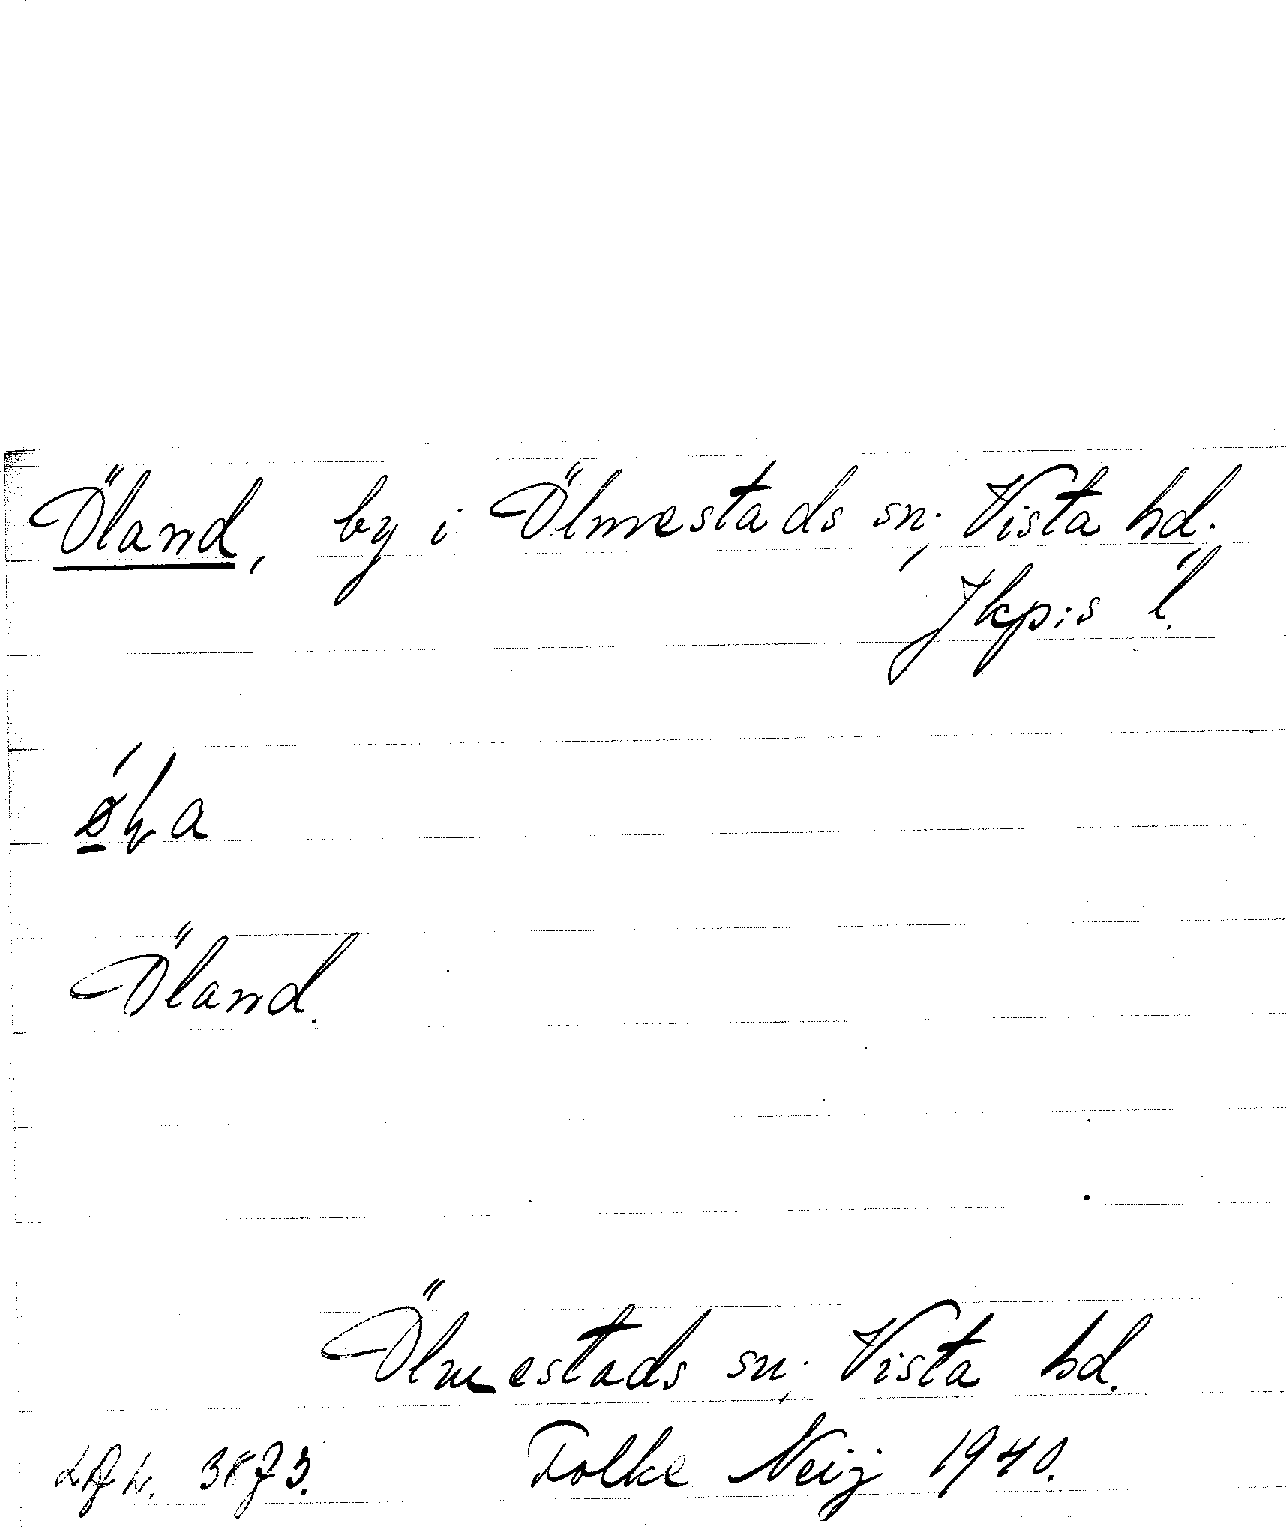 Öland, by i Ölmestads sn; Vista hd.
Jkp:s l.
Öland.
Ölmestads sn; Vista hd.
3873. Folke Neij 1940.